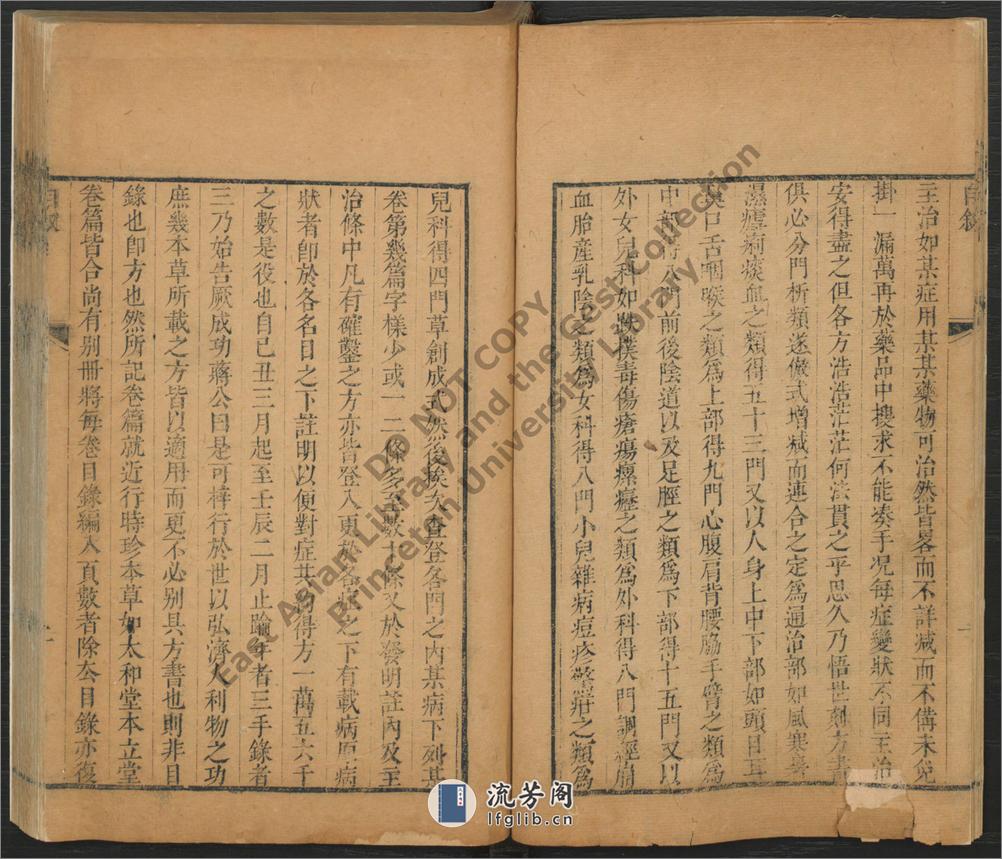 主治如某症用某某藥物可治然皆畧而不詳减而不偹未免
掛一漏萬再於藥品中搜求不能凑手况每症變狀不同主治
安得盡之但各方浩浩茫茫何法貫之乎思久乃悟世刻方書
俱心分門析類遂倣式增减而連合之定為通治部如風寒暑
濕瘧痢痰血之類得五十三門又以人身上中下部如頭目耳
鼻口舌咽喉之類為上部得九門心腹肩背腰脇手臂之類為
中部得八門前後陰道以及足脛之類為下部得十五門又以
外女兒科如跌撲毒傷瘡瘍瘰癧之類為外科得八門調經崩
血胎產乳陰之類為女科得八門小兒雜病痘疹驚疳之類為
自叙
一
兒科得四門草創成式然後挨次查登各門之内某病下列某
卷第幾篇字樣少或一二條多至數十條又於發明註内及主
治條中凡有確鑿之方亦皆登入更於各症之下有載病原病
狀者卽於各名目之下註明以便對症共約得方一萬五六千
之數是役也自己丑三月起至壬辰二月止踰年者三手錄者
三乃始告厥成功蔣公曰是可梓行於世以弘濟人利物之功
庶幾本草所載之方皆以適用而更不必别具方書也則非目
錄也卽方也然所記卷篇就近行時珍本草如太和堂本立堂
卷篇皆合尚有别冊將每卷目錄編入頁數者除本目錄亦復
自叙
二
DO NOT COPY
East Asian Library and the Gest Collection
Princeton University Library
流芳阁
lfglib.cn